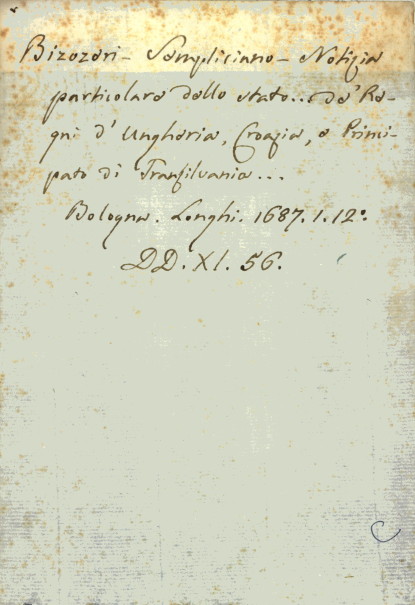 Bizozeri - Sempliciano - Notizia
particolare dello stato... de' Re-
gni d' Ungheria, Croazia, e Princi-
pato di Transilvania...
Bologna. Longhi. 1687. 1. 12°.
DD. XI. 56.